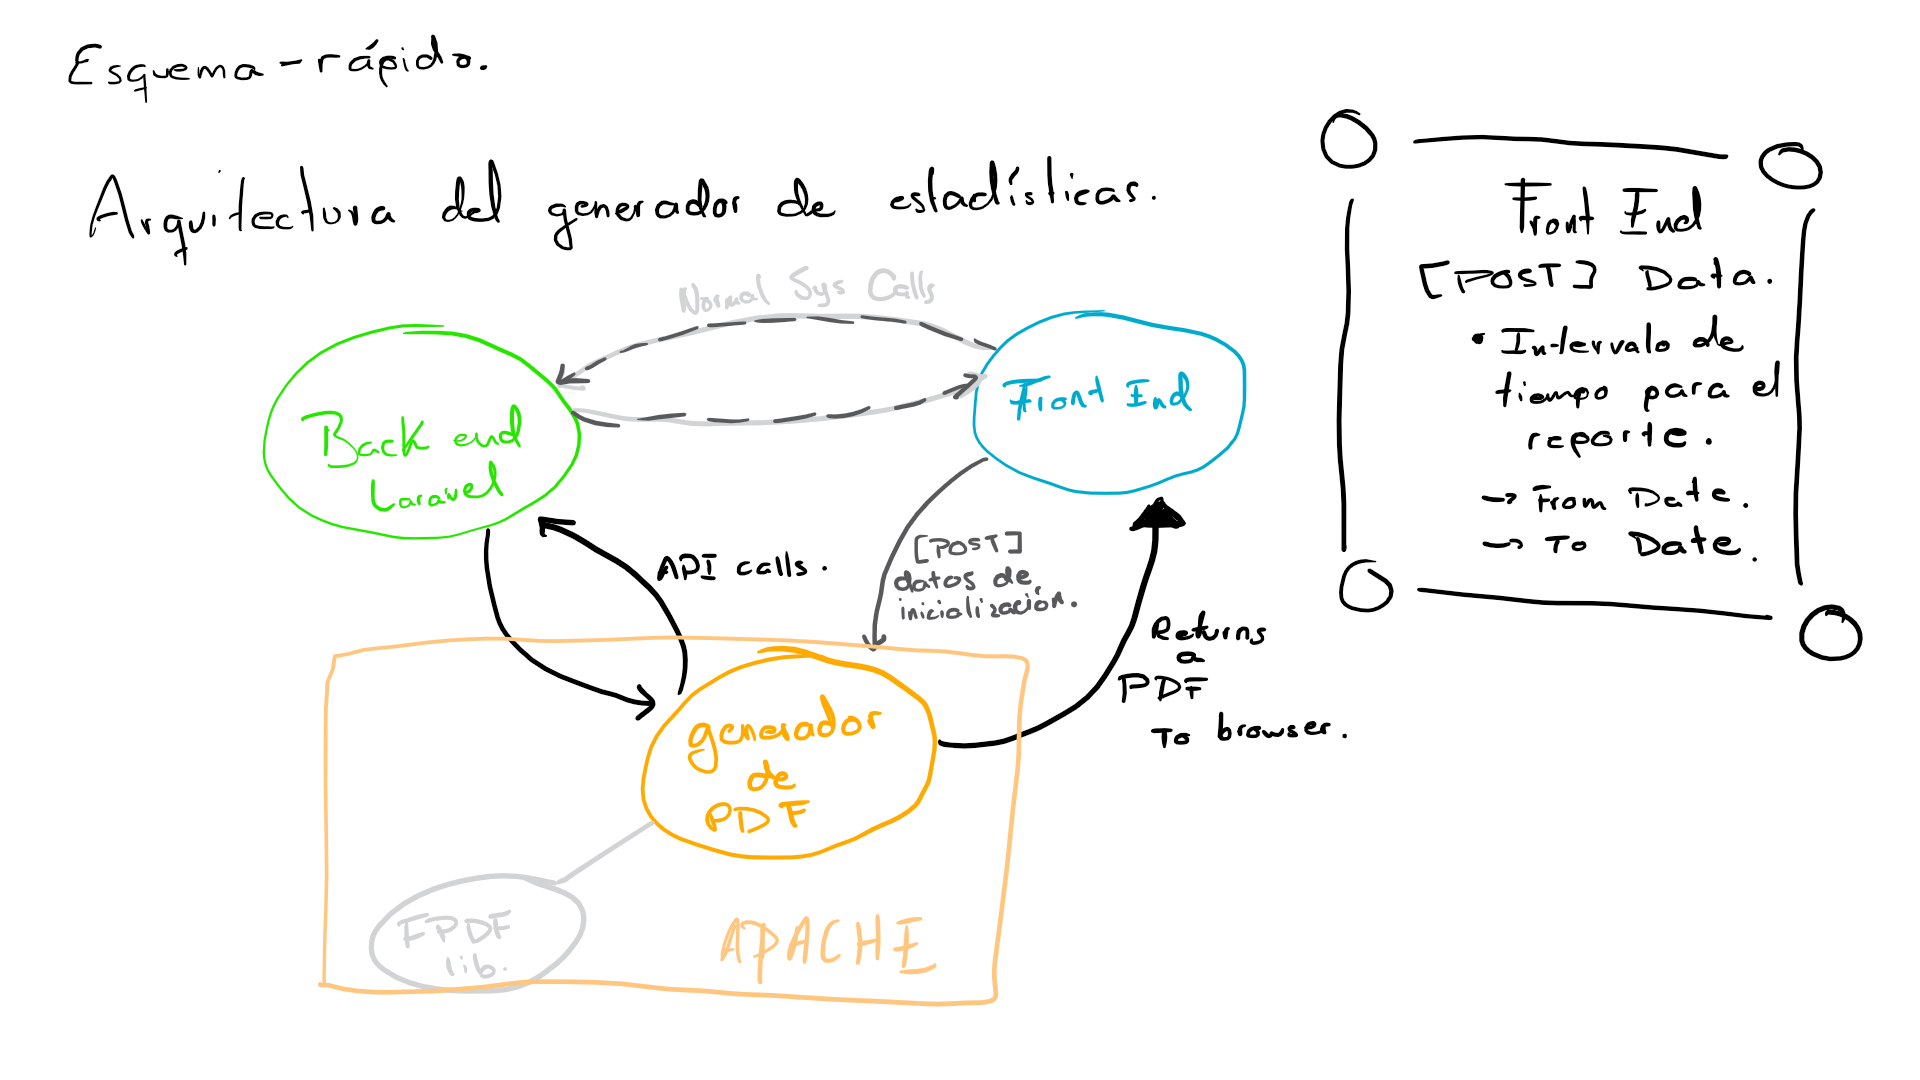 Esquema-rápido.
Arquitectura del generador de estadísticas.
Normal Sys Calls
Back end
Laravel
Front End
API calls.
[POST]
datos de
inicialización.
Returns
a
PDF
To browser.
generador
de
PDF
FPDF
lib.
APACHE
Front End
[POST] Data.
• Intervalo de
tiempo para el
reporte.
→ From Date.
→ To Date.